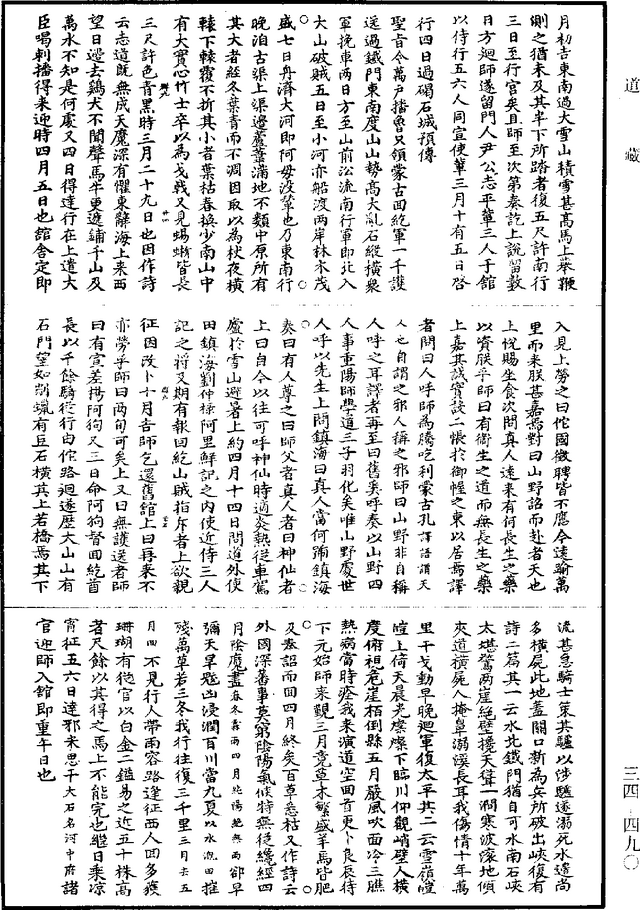 道藏
月初吉東南過大雪山積雪甚高馬上舉鞭
測之猶未及其半下所踏者復五尺許南行
三日至行宮矣且師至次第奏訖上說留數
日方迴師遂留門人尹公志平輩三人于館
以侍行五六人同宣使輩三月十有五日啓
行四日過碣石城預傳
聖旨令萬戶播魯只領蒙古回紇軍一千護
送過鐵門東南度山山勢高大亂石縱橫衆
軍挽車兩日方至山前沿流南行軍即北入
大山破賊五日至小河亦船渡兩岸林木茂
盛七日舟濟大河即阿母没輦也乃東南行
晚泊古渠上渠邊蘆葦滿地不類中原所有
其大者經冬葉青而不凋因取以為杖夜橫
轅下轅覆不折其小者葉枯春換少南山中
有大實心竹士卒以為戈戟又見蜥蜴皆長
三尺許色青黑時三月二十九日也因作詩
云志道既無成天魔深有懼東辭海上來西
望日邊去鷄犬不聞聲馬牛更遞鋪千山及
萬水不知是何處又四日得達行在上遣大
臣喝剌播得來迎時四月五日也館舍定即
入見上勞之曰佗國徵聘皆不應今遠踰萬
里而來朕甚嘉焉對曰山野詔而赴者天也
上悅賜坐食次問真人遠來有何長生之藥
以資朕乎師曰有衛生之道而無長生之藥
上嘉其誠實設二帳於御幄之東以居焉譯
者問曰人呼師為騰吃利蒙古孔譯語謂天
人也自謂之邪人稱之邪師曰山野非自稱
人呼之耳譯者再至曰舊奚呼奏以山野四
人事重陽師學道三子羽化矣唯山野處世
人呼以先生上問鎮海曰真人當何號鎮海
奏曰有人尊之曰師父者真人者曰神仙者
上曰自今以往可呼神仙時適炎熱從車駕
廬於雪山避暑上約四月十四日問道外使
田鎮海劉仲祿阿里鮮記之內使近侍三人
記之將及期有報回紇山賊指斥者上欲親
征因改卜十月吉師乞還舊館上曰再來不
亦勞乎師曰兩旬可矣上又曰無護送者師
曰有宣差楊阿狗又三日命阿狗督回紇酋
長以千餘騎從行由佗路迴遂歷大山山有
石門望如削蠟有巨石橫其上若橋焉其下
流甚急騎士策其驢以涉驢遂溺死水邊尚
多橫屍此地蓋關口新為兵所破出峽復有
詩二篇其一云水北鐵門猶自可水南石峽
太堪驚兩崖絕壁攙天聳一澗寒波滾地傾
夾道橫屍人掩鼻溺溪長耳我傷情十年萬
里干戈動早晚迴軍復太平其二云雪嶺皚
皚上倚天晨光燦燦下臨川仰觀峭壁人橫
度俯視危崖栢倒懸五月嚴風吹面冷三膲
熱病當時痊我來演道空回首更卜良辰待
下元始師來覲三月竟草木繁盛羊馬皆肥
及奉詔而回四月終矣百草悉枯又作詩云
外國深蕃事莫窮陰陽氣候特無從纔經四
月陰魔盡春冬霖雨四月純陽絕無雨却早
彌天旱魃凶浸潤百川當九夏以水溉田摧
殘萬草若三冬我行往復三千里三月去五
月回不見行人帶雨容路逢征西人回多獲
珊瑚有從官以白金二鎰易之近五十株高
者尺餘以其得之馬上不能完也繼日乘涼
宵征五六日達邪米思干大石名河中府諸
官迎師入館即重午日也
三四·四九〇